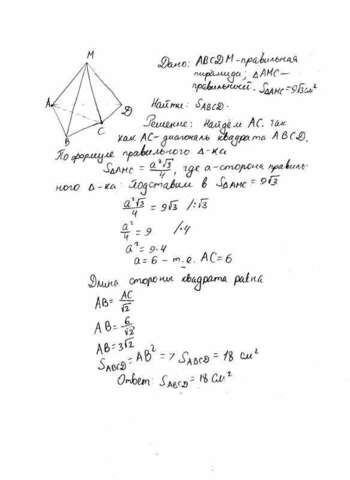 M
A
B
C
D
Дано: ABCDM - правильная
пирамида; △AMC -
правильный. S△AMC = 9√3 см²
Найти: SABCD.
Решение: Найдём AC. так
как AC - диагональ квадрата ABCD.
По формуле правильного △-ка
S△AMC = a²√3/4, где a - сторона правиль-
ного △-ка. Подставим в S△AMC = 9√3
a²√3/4 = 9√3 /:√3
a²/4 = 9 /·4
a² = 9·4
a = 6 - т.е. AC = 6
Длина стороны квадрата равна
AB = AC/√2
AB = 6/√2
AB = 3√2
SABCD = AB² => SABCD = 18 см²
Ответ: SABCD = 18 см²